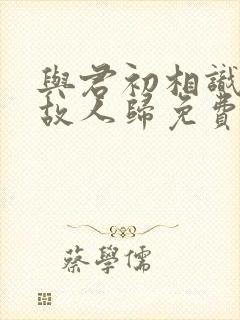 與君初相識
故人歸免費
蔡學儒